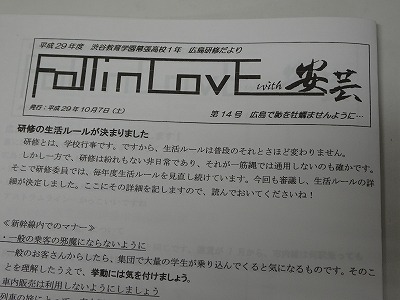 平成29年度 渋谷教育学園幕張高校1年 広島研修だより
Fall in LovE with 安芸
発行：平成29年10月7日（土） 第14号 広島で恥を牡蠣ませんように…
研修の生活ルールが決まりました
研修とは、学校行事です。ですから、生活ルールは普段のそれとさほど変わりません。
しかし一方で、研修は紛れもない非日常であり、それが一筋縄では通用しないのも確かです。
そこで研修委員では、毎年度生活ルールを見直し続けています。今回も審議し、生活ルールの詳
細が決定しました。ここにその詳細を記しますので、読んでおいてくださいね！
≪新幹線内でのマナー≫
・一般の乗客の邪魔にならないように
一般のお客さんからしたら、集団で大量の学生が乗り込んでくると気になるものです。そのこ
とを理解したうえで、挙動には気を付けましょう。
車内販売は利用しないようにしましょう